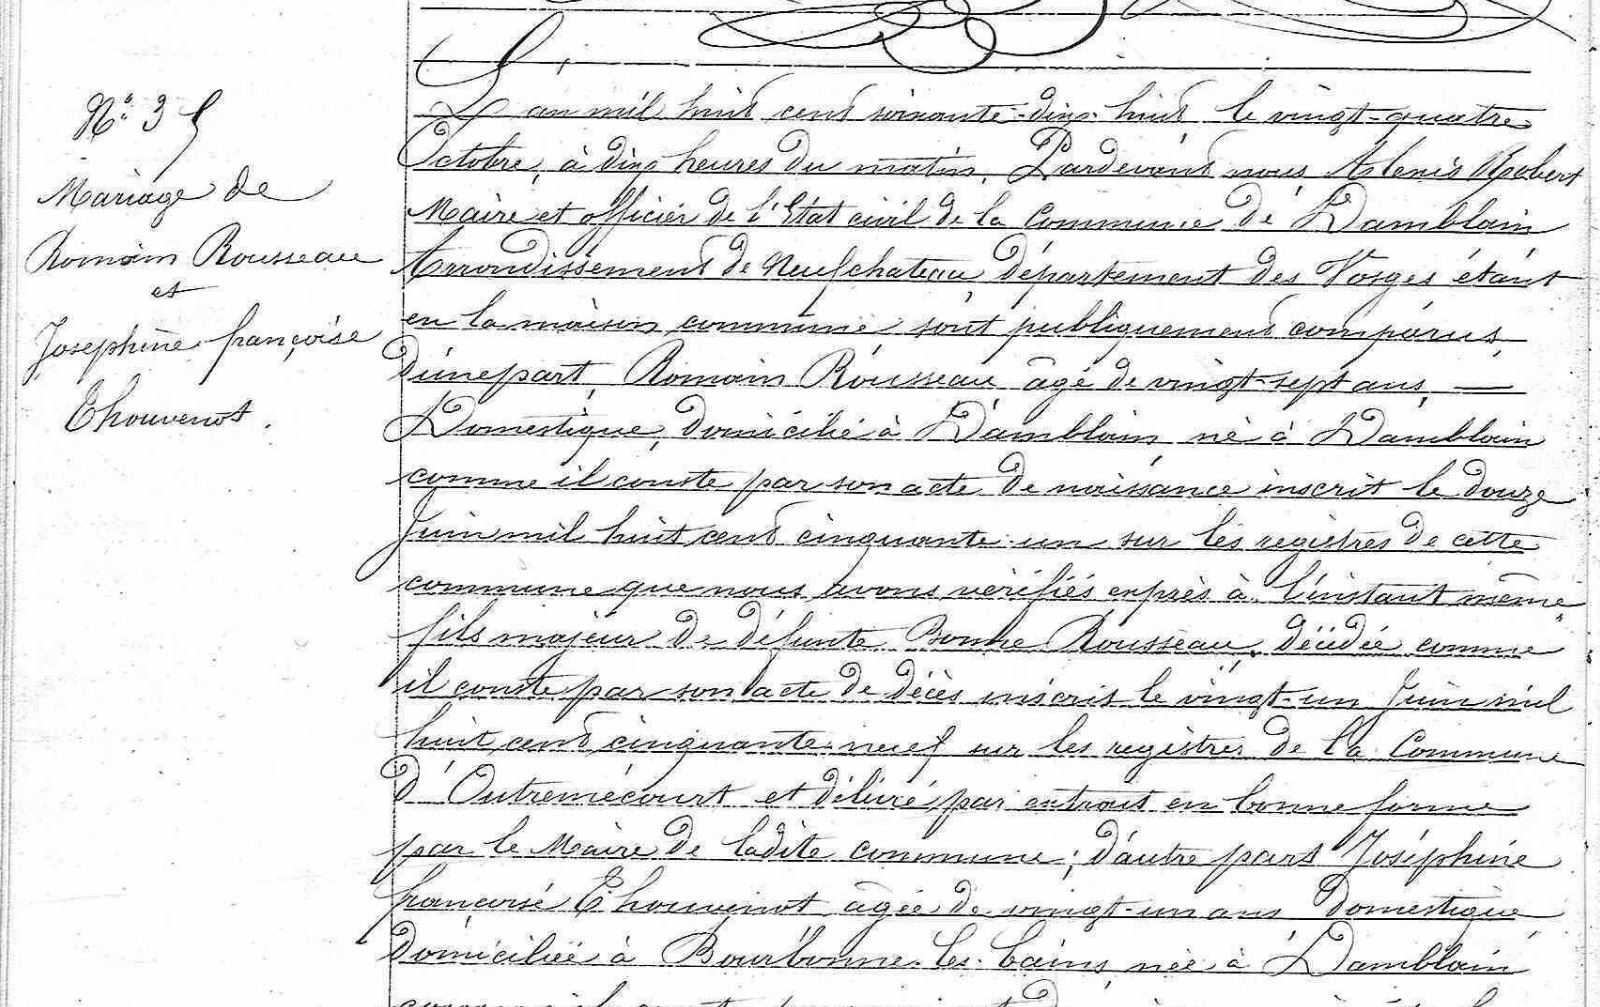 N° 3
Mariage de
Romain Rousseau
et
Joséphine françoise
Thouvenot.
L'an mil huit cent soixante-dix-huit le vingt-quatre
Octobre, à dix heures du matin, Pardevant nous Robert
Maire et officier de l'Etat civil de la Commune de Damblain
Arrondissement de Neufchateau département des Vosges étant
en la maison commune, sont publiquement comparus,
d'une part, Romain Rousseau âgé de vingt-sept ans, —
Domestique, domicilié à Damblain né à Damblain
comme il conste par son acte de naissance inscrit le douze
Juin mil huit cent cinquante-un sur les registres de cette
commune que nous avons vérifiés exprès à l'instant même
fils majeur de défunte Bonne Rousseau, décédée comme
il conste par son acte de décès inscrit le vingt-un Juin mil
huit cent cinquante-neuf sur les registres de la Commune
d'Outremécourt et délivré par extrait en bonne forme
par le Maire de ladite commune; d'autre part Joséphine
françoise Thouvenot âgée de vingt-un ans Domestique
domiciliée à Bourbonne-les-bains née à Damblain